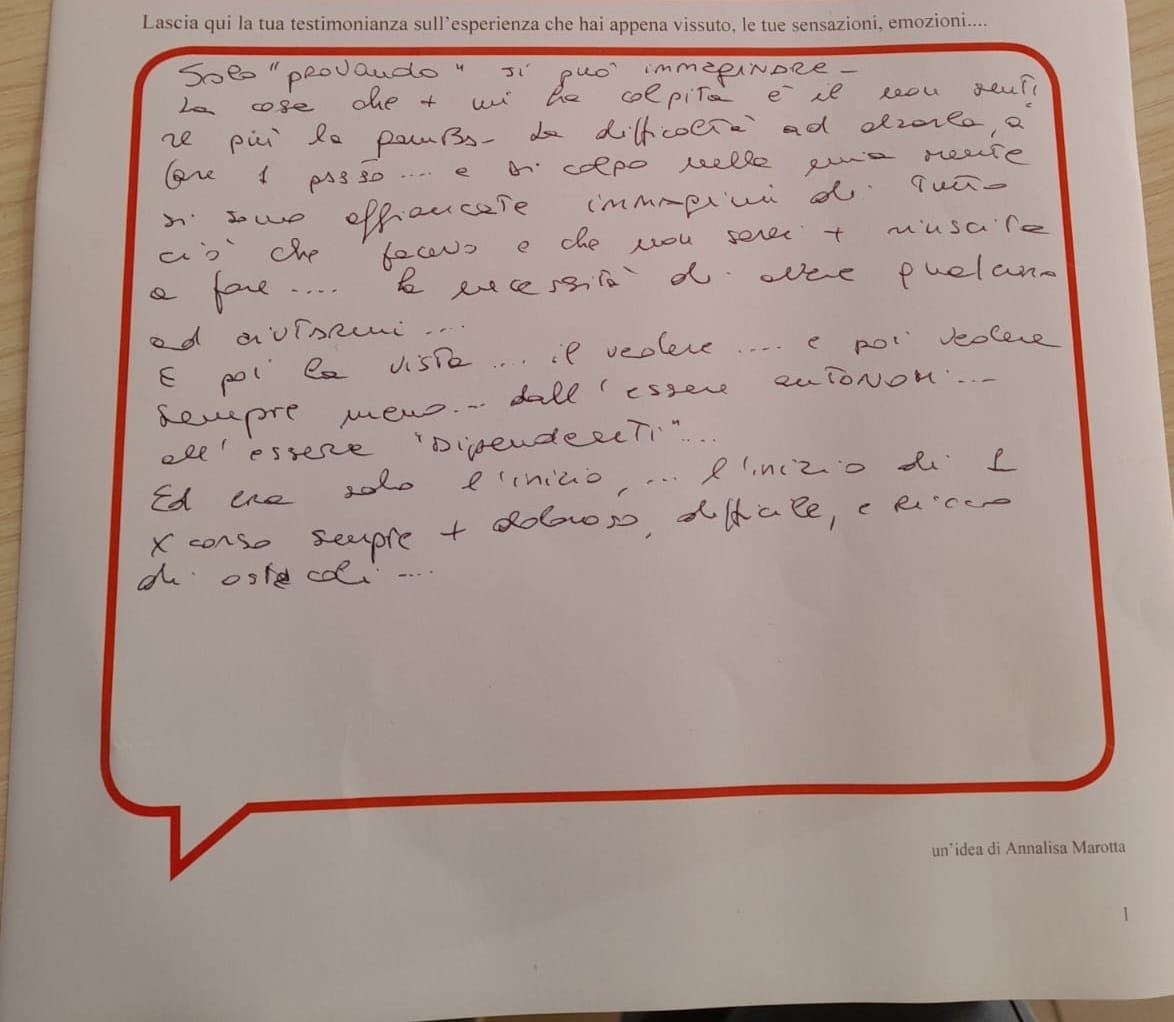 Lascia qui la tua testimonianza sull'esperienza che hai appena vissuto, le tue sensazioni, emozioni....
Solo "provando" si può immaginare -
La cosa che + mi ha colpita è il non senti
re più la gamba - La difficoltà ad alzarla, a
fare 1 passo .... e di colpo nella mia mente
si sono affiancate immagini di tutto
ciò che facevo e che non sarei + riuscita
a fare .... la necessità di avere qualcuno
ad aiutarmi ...
E poi la vista ... il vedere .... e poi vedere
sempre meno ... dall'essere autonomi ...
all'essere "Dipendenti" ...
Ed era solo l'inizio, ... l'inizio di 1
x corso sempre + doloroso, difficile, e ricco
di ostacoli ....
un'idea di Annalisa Marotta
1